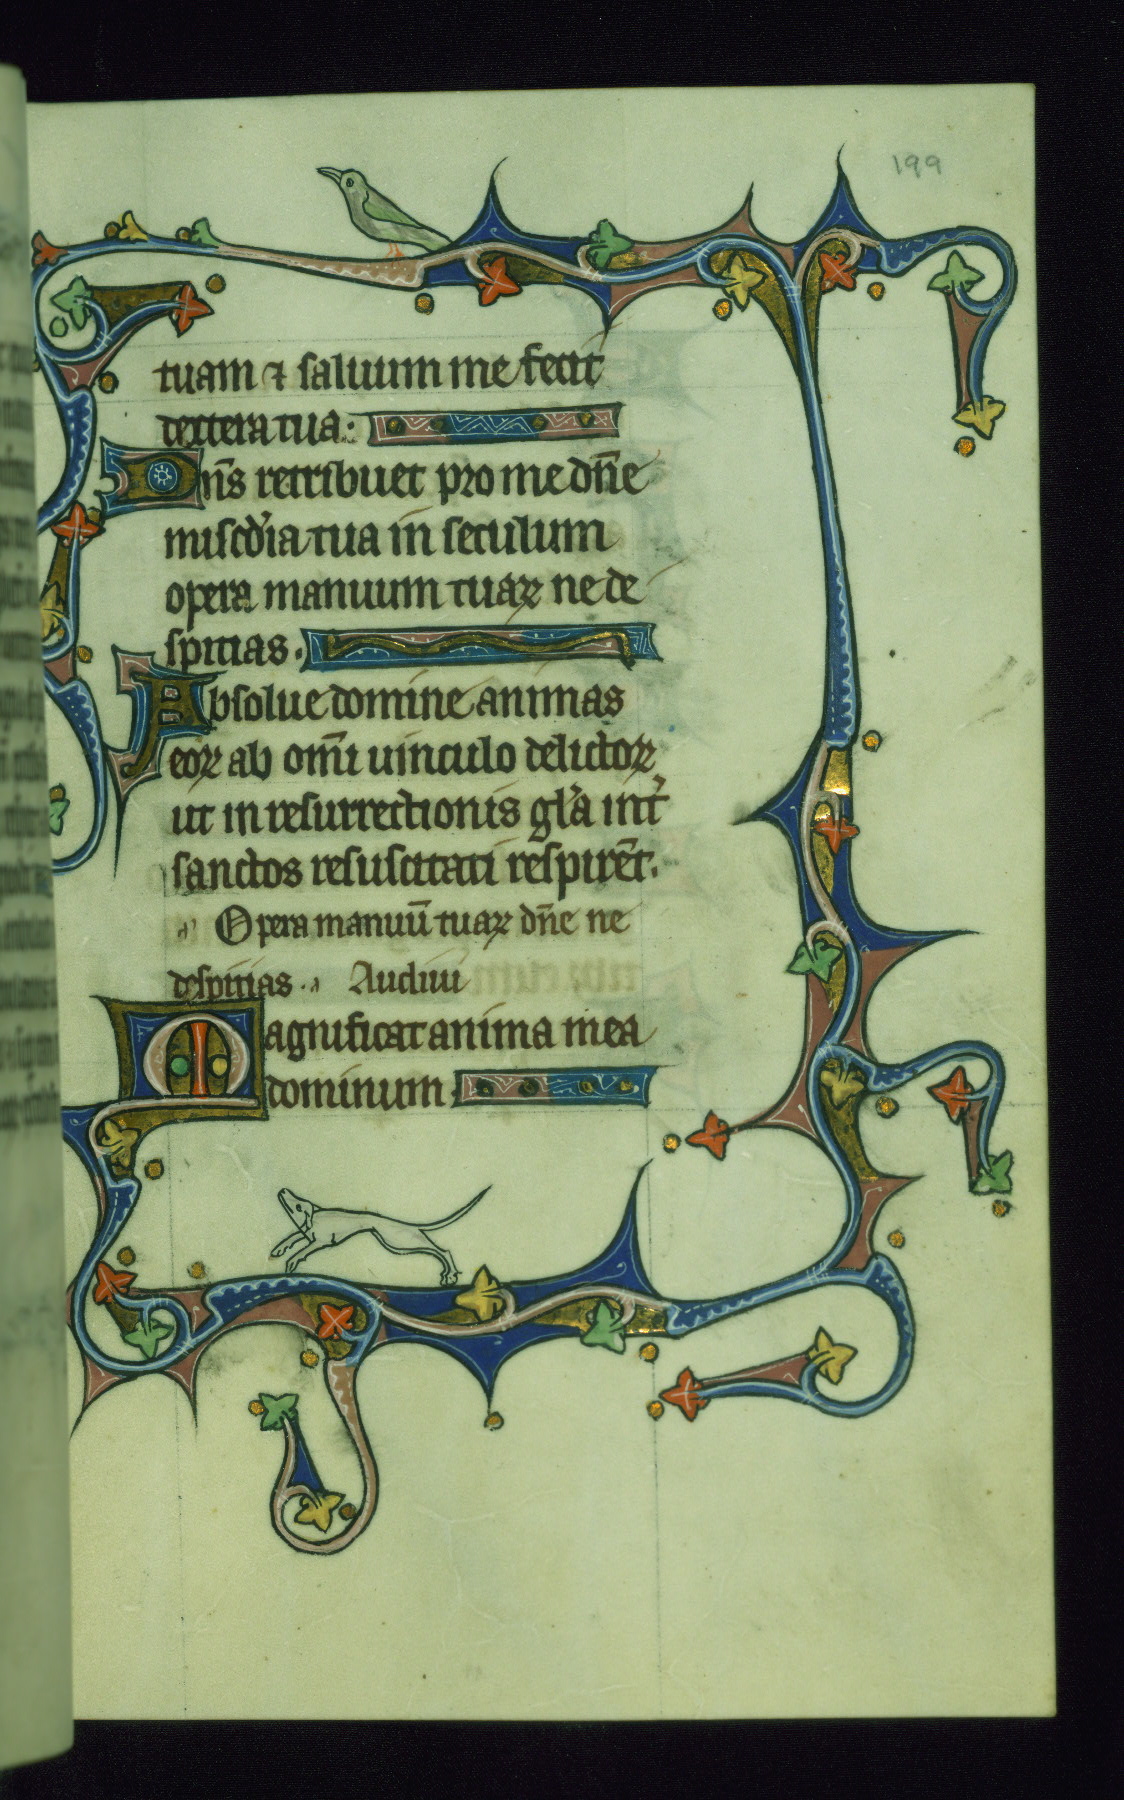 199
tuam ⁊ saluum me fecit
dextera tua:
Dn̄s retribuet pro me dn̄e
misc̄dia tua in seculum
opera manuum tuaꝝ ne de
spicias.
Absolue domine animas
eoꝝ ab om̄i uinculo delictoꝝ
ut in resurrectionis gl̄a int̾
sanctos resuscitati respirēt.
a' Opera manuū tuaꝝ dn̄e ne
despicias. a Audiui
Magnificat anima mea
dominum